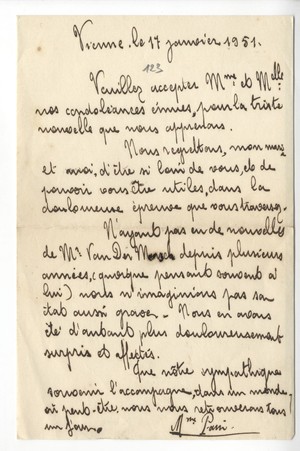 Vienne. le 17 janvier 1951.
123
Veuillez accepter Mme et Melle
nos condoléances émues, pour la triste
nouvelle que nous apprenons.
Nous regrettons, mon mari
et moi, d'être si loin de vous, et de
pouvoir vous être utiles, dans la
douloureuse épreuve que vous traversez.
N'ayant pas eu de nouvelles
de Mr Van Der depuis plusieurs
années, (quoique pensant souvent à
lui) nous n'imaginions pas son
état aussi grave. Nous en avons
été d'autant plus douloureusement
surpris et affectés.
Que notre sympathique
souvenir l'accompagne, dans un monde,
où peut-être nous nous retrouverons tous
un jour. Mme